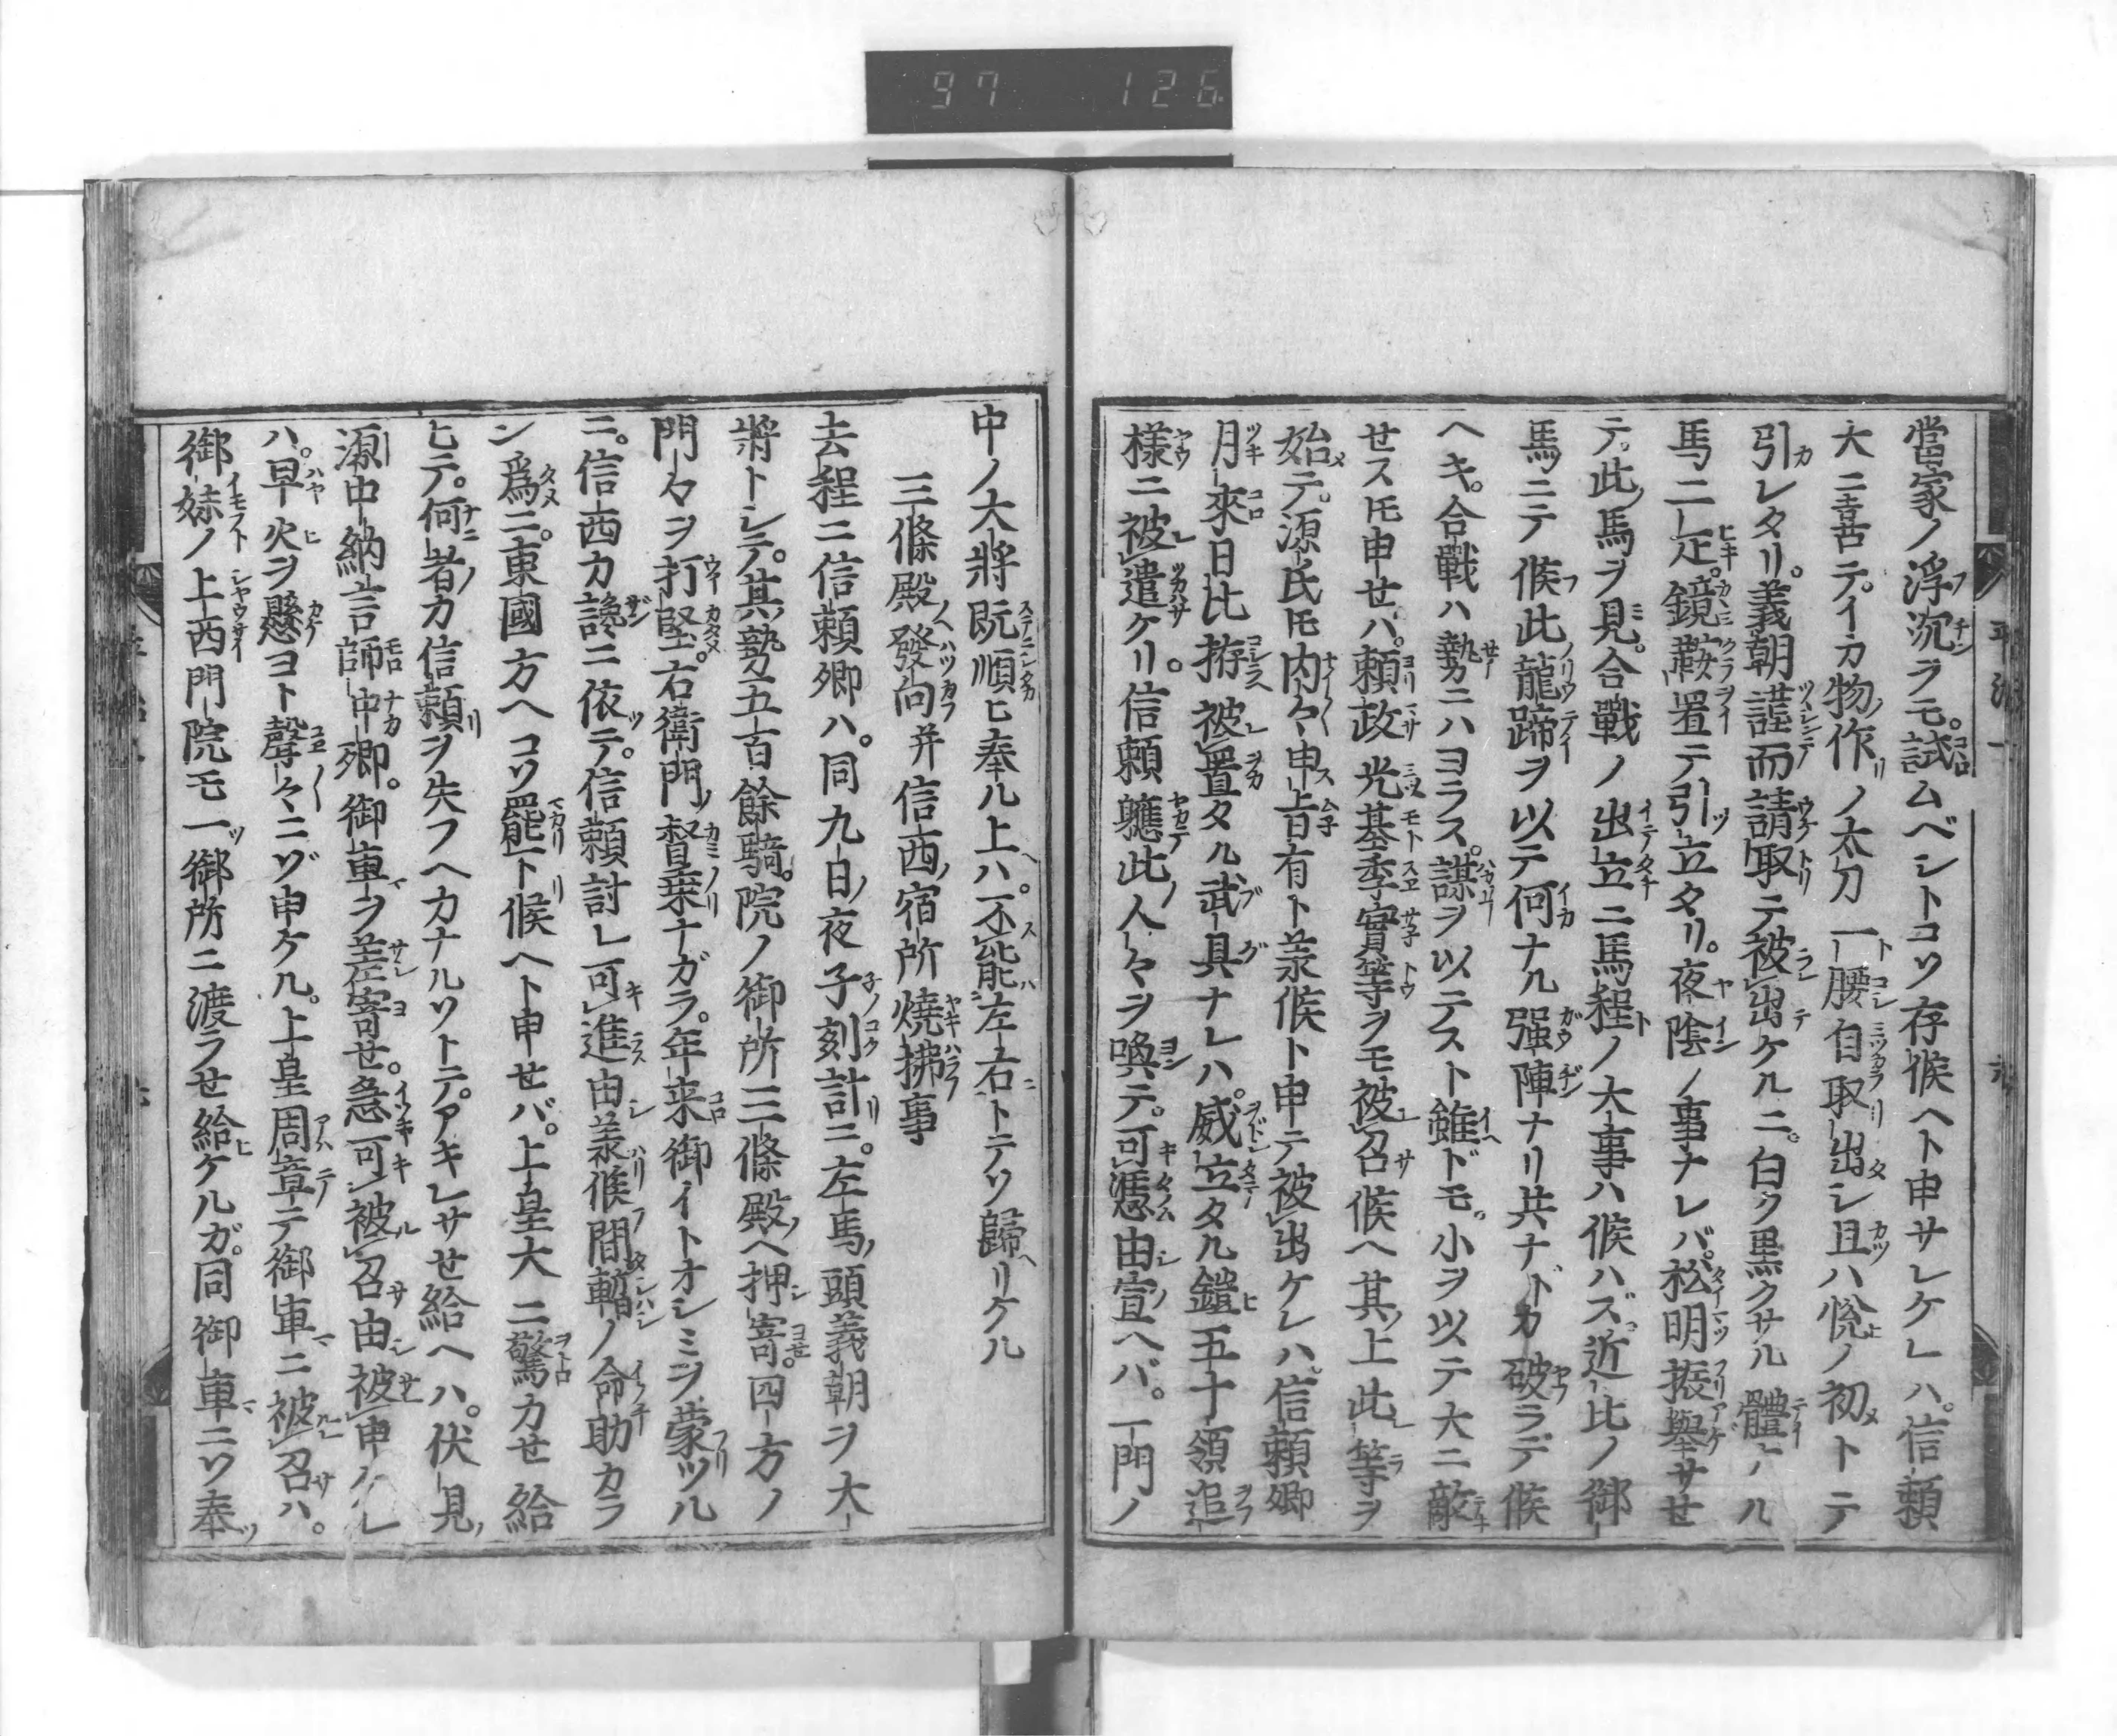 97 126
當家ノ浮沉ヲモ。試ムベシトコソ存候ヘト申サレケレハ。信頼
大ニ喜テ。イカ物作ノ太刀一腰自取出シ且ハ悅ノ初トテ
引レタリ。義朝謹而請取テ被出ケルニ。白ク黒クサル體ナル
馬二疋。鏡鞍置テ引立タリ。夜陰ノ事ナレバ。松明振擧サせ
テ。此馬ヲ見。合戰ノ出立ニ馬程ノ大事ハ候ハズ。近比ノ御
馬ニテ候此龍蹄ヲ以テ何ナル强陣ナリ共ナドカ破ラデ候
ヘキ。合戰ハ勢ニハヨラス。謀ヲ以テスト雖ドモ。小ヲ以テ大ニ敵
せスト申せバ。頼政光基季實等ヲモ被召候ヘ其上此等ヲ
始テ。源氏𪜈内々申旨有ト羕候ト申テ被出ケレハ。信頼卿
月來日比拵被置タル武具ナレハ。威立タル鎧五十領追
樣ニ被遣ケリ。信頼軈此人々ヲ喚テ。可憑由宣ヘバ。一門ノ
中ノ大將既順ヒ奉ル上ハ。不能左右トテソ歸リケル
三條殿發向并信西宿所燒拂事
去程ニ信頼卿ハ。同九日ノ夜子刻計ニ。左馬頭義朝ヲ大
將トシテ。其勢五百餘騎。院ノ御所三條殿ヘ押寄。四方ノ
門々ヲ打堅。右衞門督乗ナガラ。年来御イトオシミヲ蒙ツル
ニ。信西カ讒ニ依テ。信頼討レ可進由羕候間暫ノ命助カラ
ン爲ニ。東國方ヘコソ罷下候ヘト申せバ。上皇大ニ驚カせ給
ヒテ。何者カ信頼ヲ失フヘカナルソトテ。アキレサせ給ヘハ。伏見
源中納言師中卿。御車ヲ差寄せ。急可被召由被申ケレ
ハ。早火ヲ懸ヨト聲々ニゾ申ケル。上皇周章テ御車ニ被召ハ。
御妹ノ上西門院モ一御所ニ渡ラせ給ケルガ。同御車ニソ奉